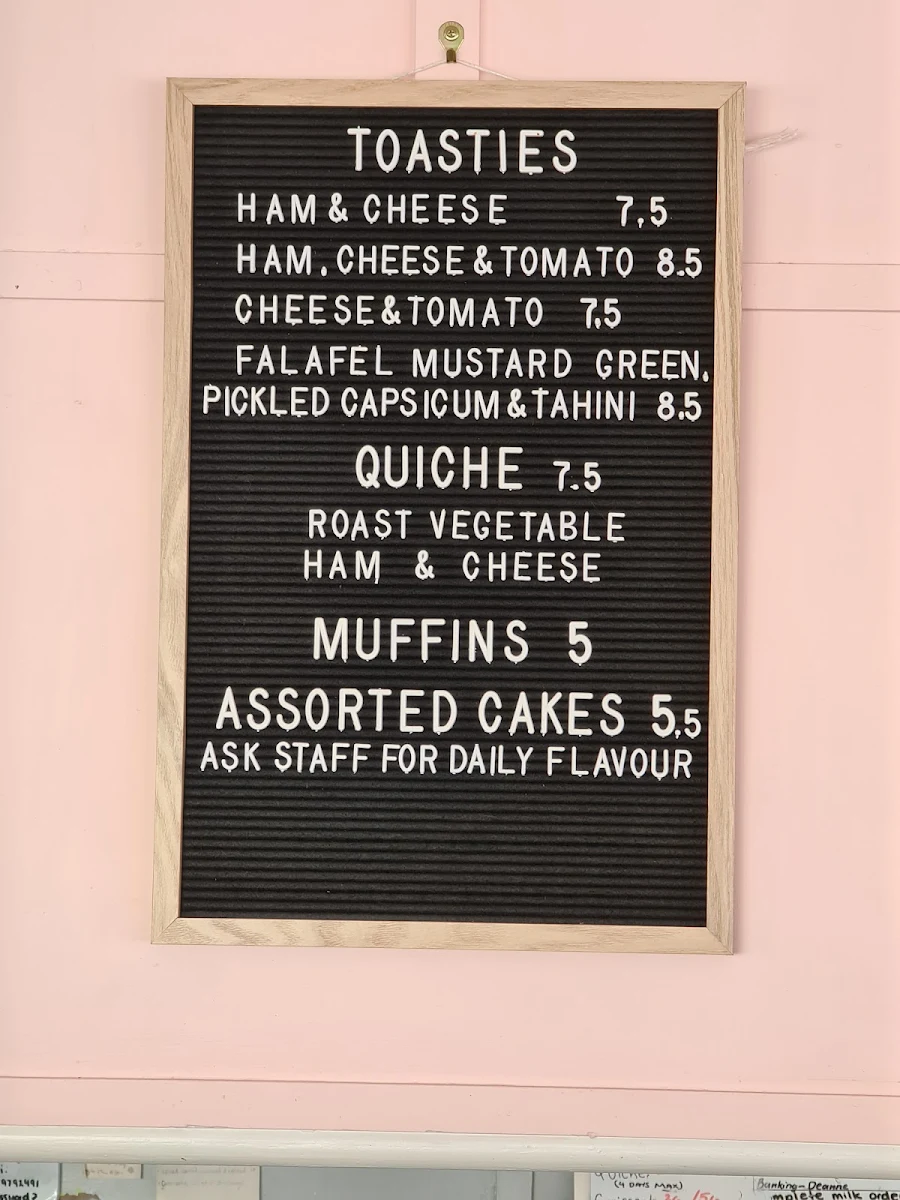 TOASTIES
HAM & CHEESE 7,5
HAM, CHEESE & TOMATO 8.5
CHEESE & TOMATO 7,5
FALAFEL MUSTARD GREEN,
PICKLED CAPSICUM & TAHINI 8.5
QUICHE 7.5
ROAST VEGETABLE
HAM & CHEESE
MUFFINS 5
ASSORTED CAKES 5,5
ASK STAFF FOR DAILY FLAVOUR
9792491
(4 DAYS MAX)
Banking-Deanne
milk